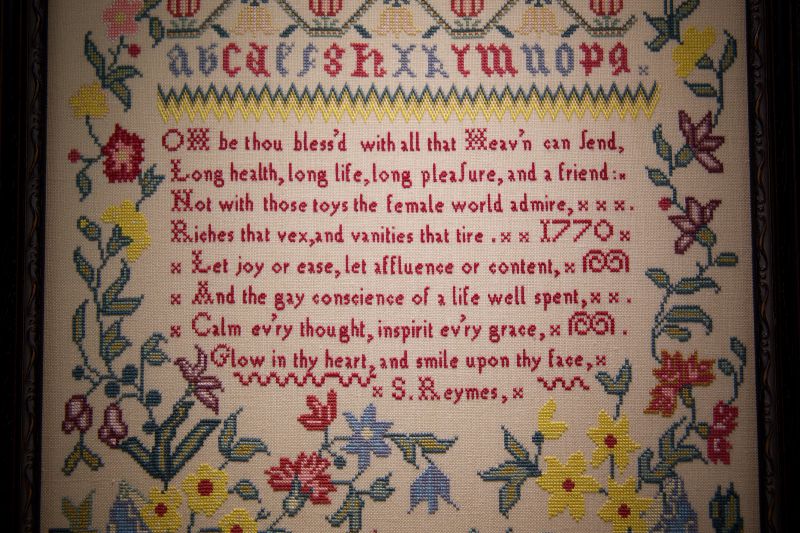 abcdefshiklmnopq
OH be thou bless'd with all that Heav'n can ſend,
Long health, long life, long pleaſure, and a friend:
Not with those toys the female world admire,
Riches that vex, and vanities that tire. 1770
Let joy or ease, let affluence or content,
And the gay conscience of a life well spent,
Calm ev'ry thought, inspirit ev'ry grace,
Glow in thy heart, and smile upon thy face,
S. Reymes,